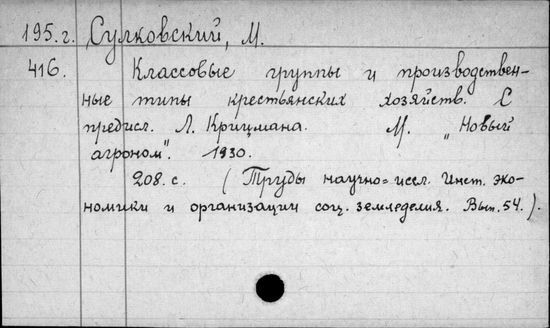 195.г. Сулковский, М.
416. Классовые группы и производствен-
ные типы крестьянских хозяйств. С
предисл. Л. Крицмана. М. „Новый
агроном". 1930.
208. с. (Труды научно=иссл. Инст. эко-
номики и организации соц. земледелия. Вып. 54.).